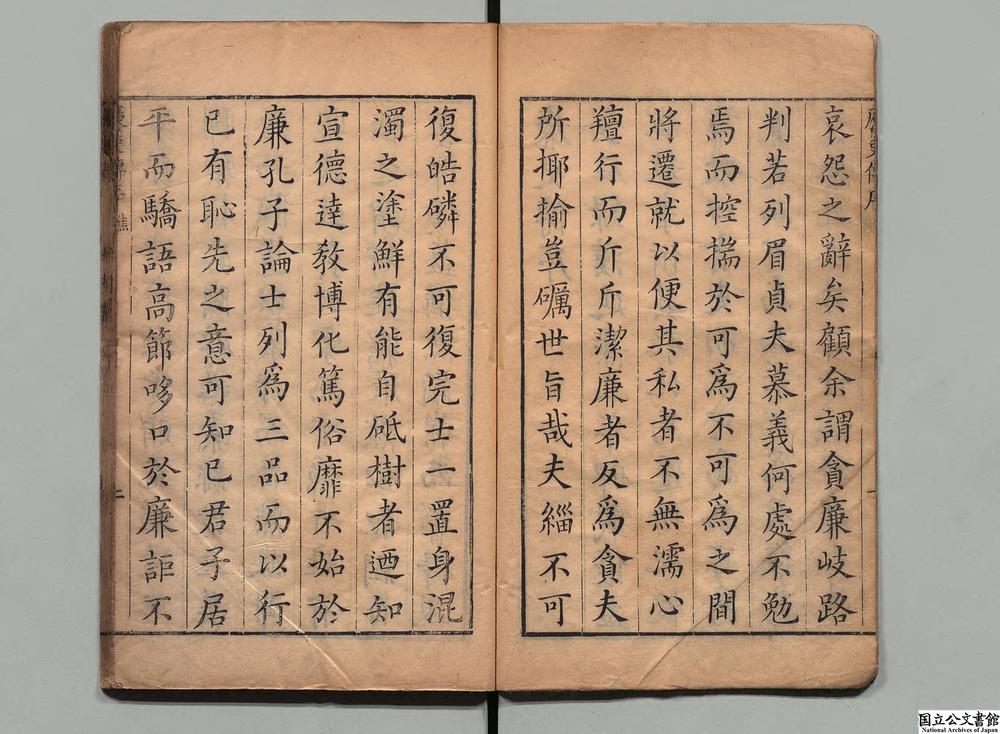 哀怨之辭矣顧余謂貪廉岐路
判若列眉貞夫慕義何處不勉
焉而控揣於可爲不可爲之間
將遷就以便其私者不無濡心
羶行而斤斤潔廉者反爲貪夫
所揶揄豈礪世旨哉夫緇不可
復皓磷不可復完士一置身混
濁之塗鮮有能自砥樹者迺知
宣德達教博化篤俗靡不始於
廉孔子論士列爲三品而以行
已有恥先之意可知已君子居
平而驕語高節哆口於廉詎不
二
国立公文書館
National Archives of Japan